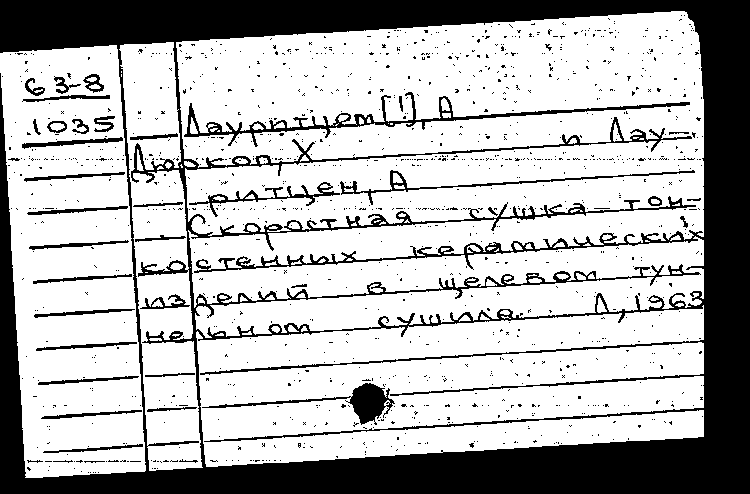 63-8
1035
Лауритцем [!], А
Дюркоп, Х и Лау-
ритцен, А
Скоростная сушка тон-
костенных керамических
изделий в щелевом тун-
нельном сушиле. Л, 1963